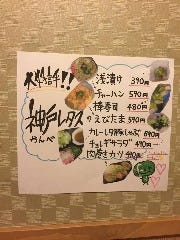 大好評!!
神戸レタス
浅漬け 390円
チャーハン 590円
棒寿司 480円
えびたま 590円
カレーしゃぶ 690円
チョレギサラダ 490円
肉巻きカツ 490円